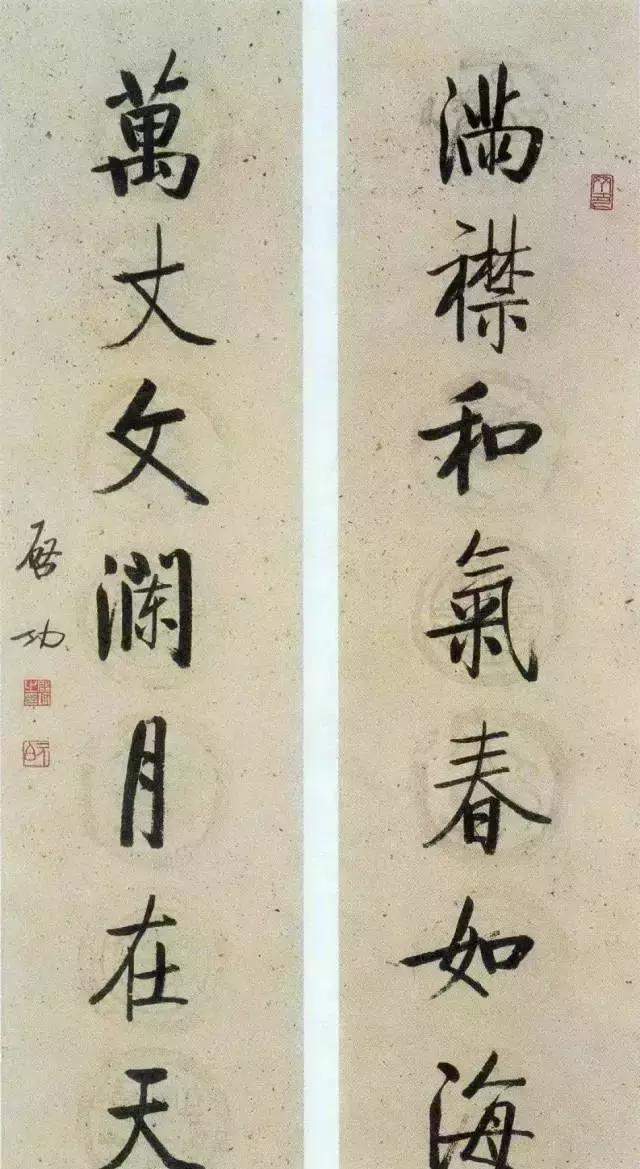 滿襟和氣春如海
萬丈文瀾月在天
啓功